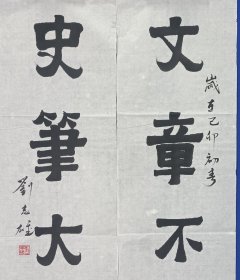 文章不
歲在己卯初春
史筆大
劉志雄